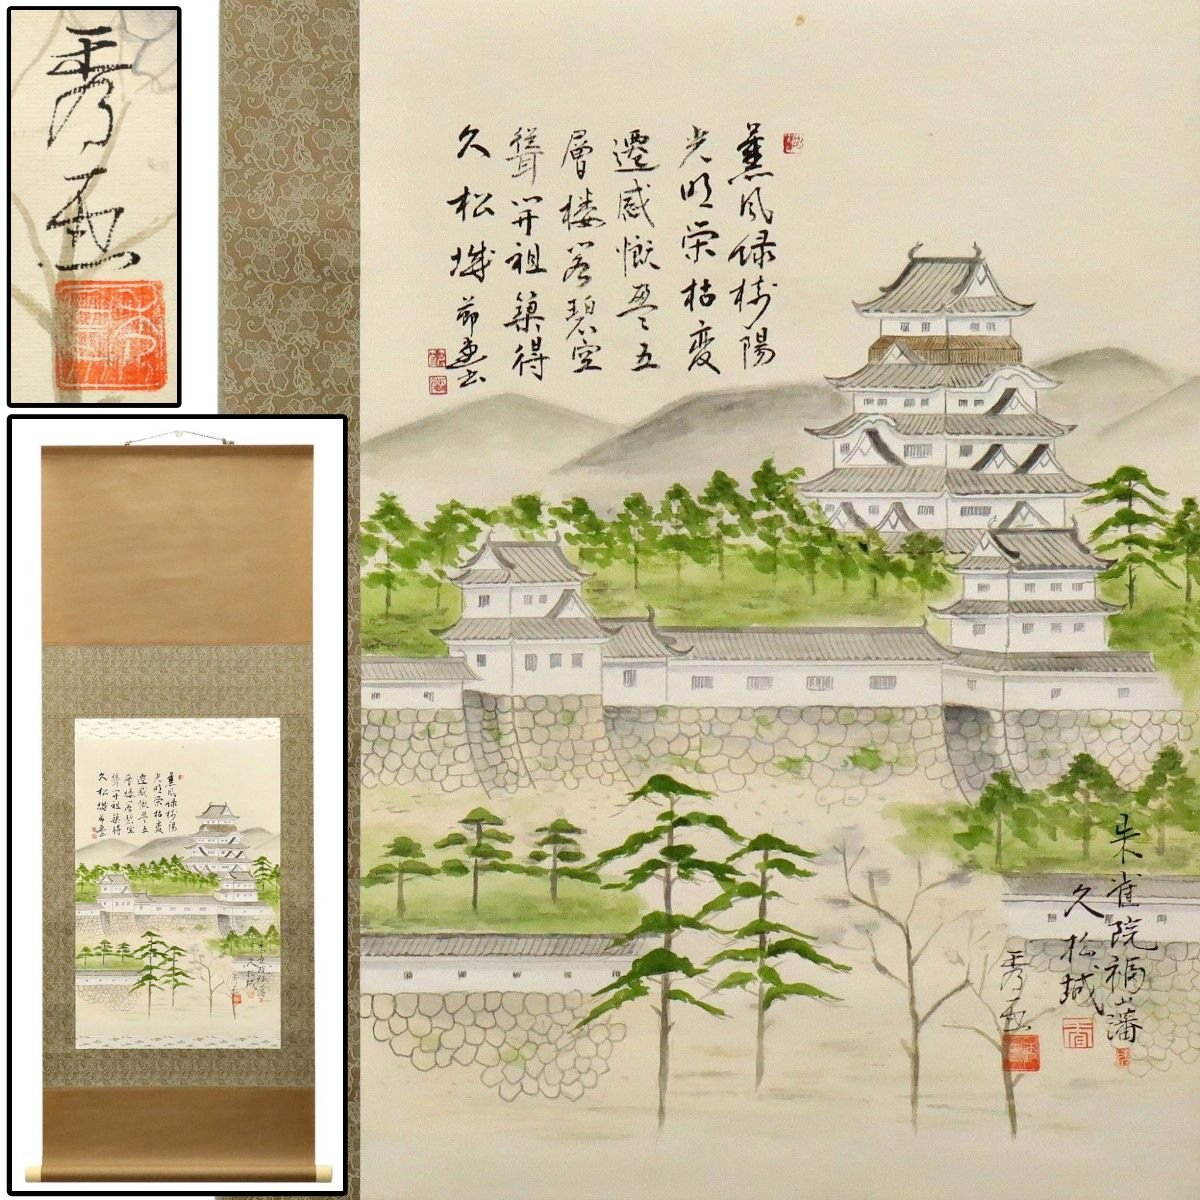 秀画
薫風緑樹陽
光明栄枯変
遷感慨無五
層楼若碧空
聳開祖築得
久松城
朱雀院福山藩
久松城
秀画